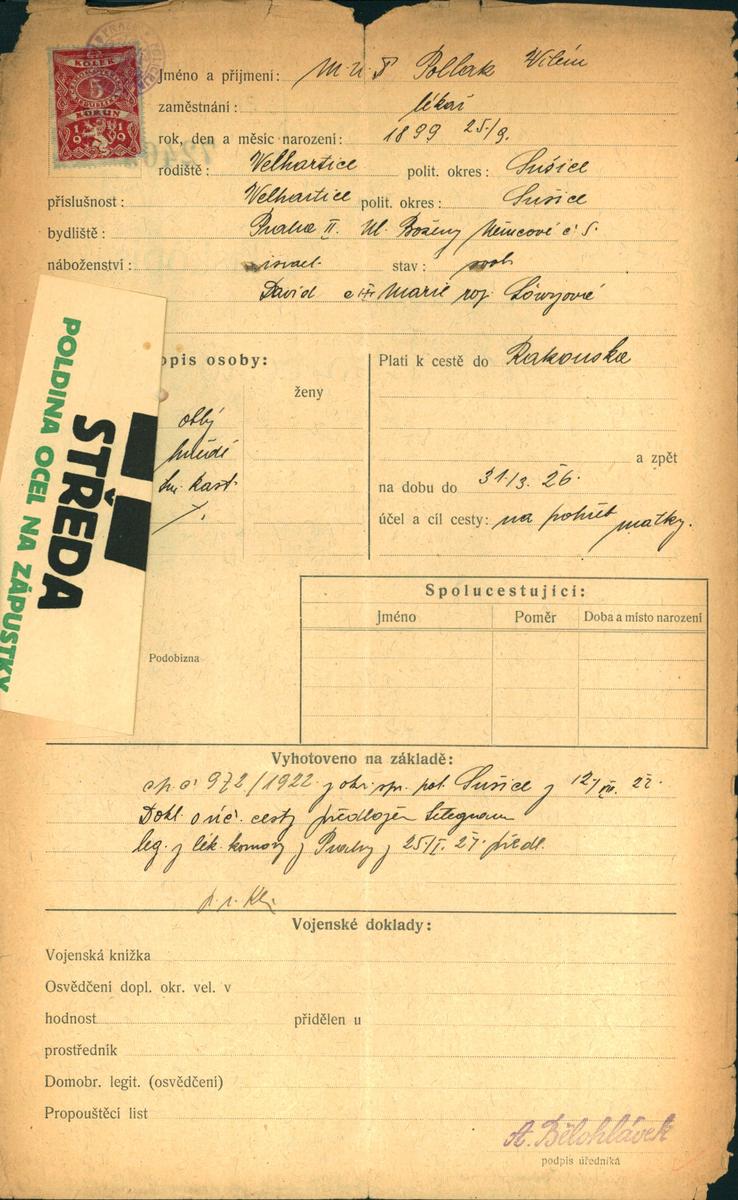 KOLEK
5
KORUN
1919
Jméno a příjmení: M.U.D Pollak Vilém
zaměstnání: lékař
rok, den a měsíc narození: 1899 25./9.
rodiště: Velhartice polit. okres: Sušice
příslušnost: Velhartice polit. okres: Sušice
bydliště: Praha II. Ul. Boženy Němcové č 5.
náboženství: israel. stav: svob
David a Marie roz.
opis osoby:
ženy
oblý
hnědé
kašt.
Platí k cestě do Rakouska
a zpět
na dobu do 31./3. 26.
účel a cíl cesty: na pohřeb matky.
POLDINA OCEL NA ZÁPUSTKY
STŘEDA
Podobizna
Spolucestující:
Jméno Poměr Doba a místo narození
Vyhotoveno na základě:
972/1922 z okr. spr. pol. Sušice z
Dokl. o úč. cesty předložen telegram
leg. z lék. komory z Prahy z předl.
Vojenské doklady:
Vojenská knížka
Osvědčení dopl. okr. vel. v
hodnost přidělen u
prostředník
Domobr. legit. (osvědčení)
Propouštěcí list
A. Bělohlávek
podpis úředníka